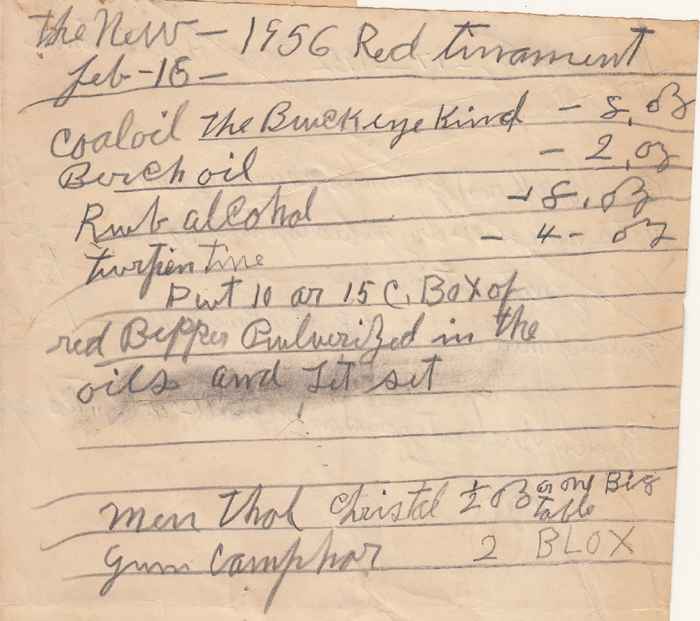 the New - 1956 Red tinament
Feb-18-
Coaloil the Buckeye Kind - 8, oz
Berch oil - 2, oz
Rub alcohol - 8, oz
turpentine - 4 - oz
Put 10 or 15 C. Box of
red Bepper Pulverized in the
oils and Let set
men thol Christel ½ oz or one Big
table
Gum Camphor 2 BLOX